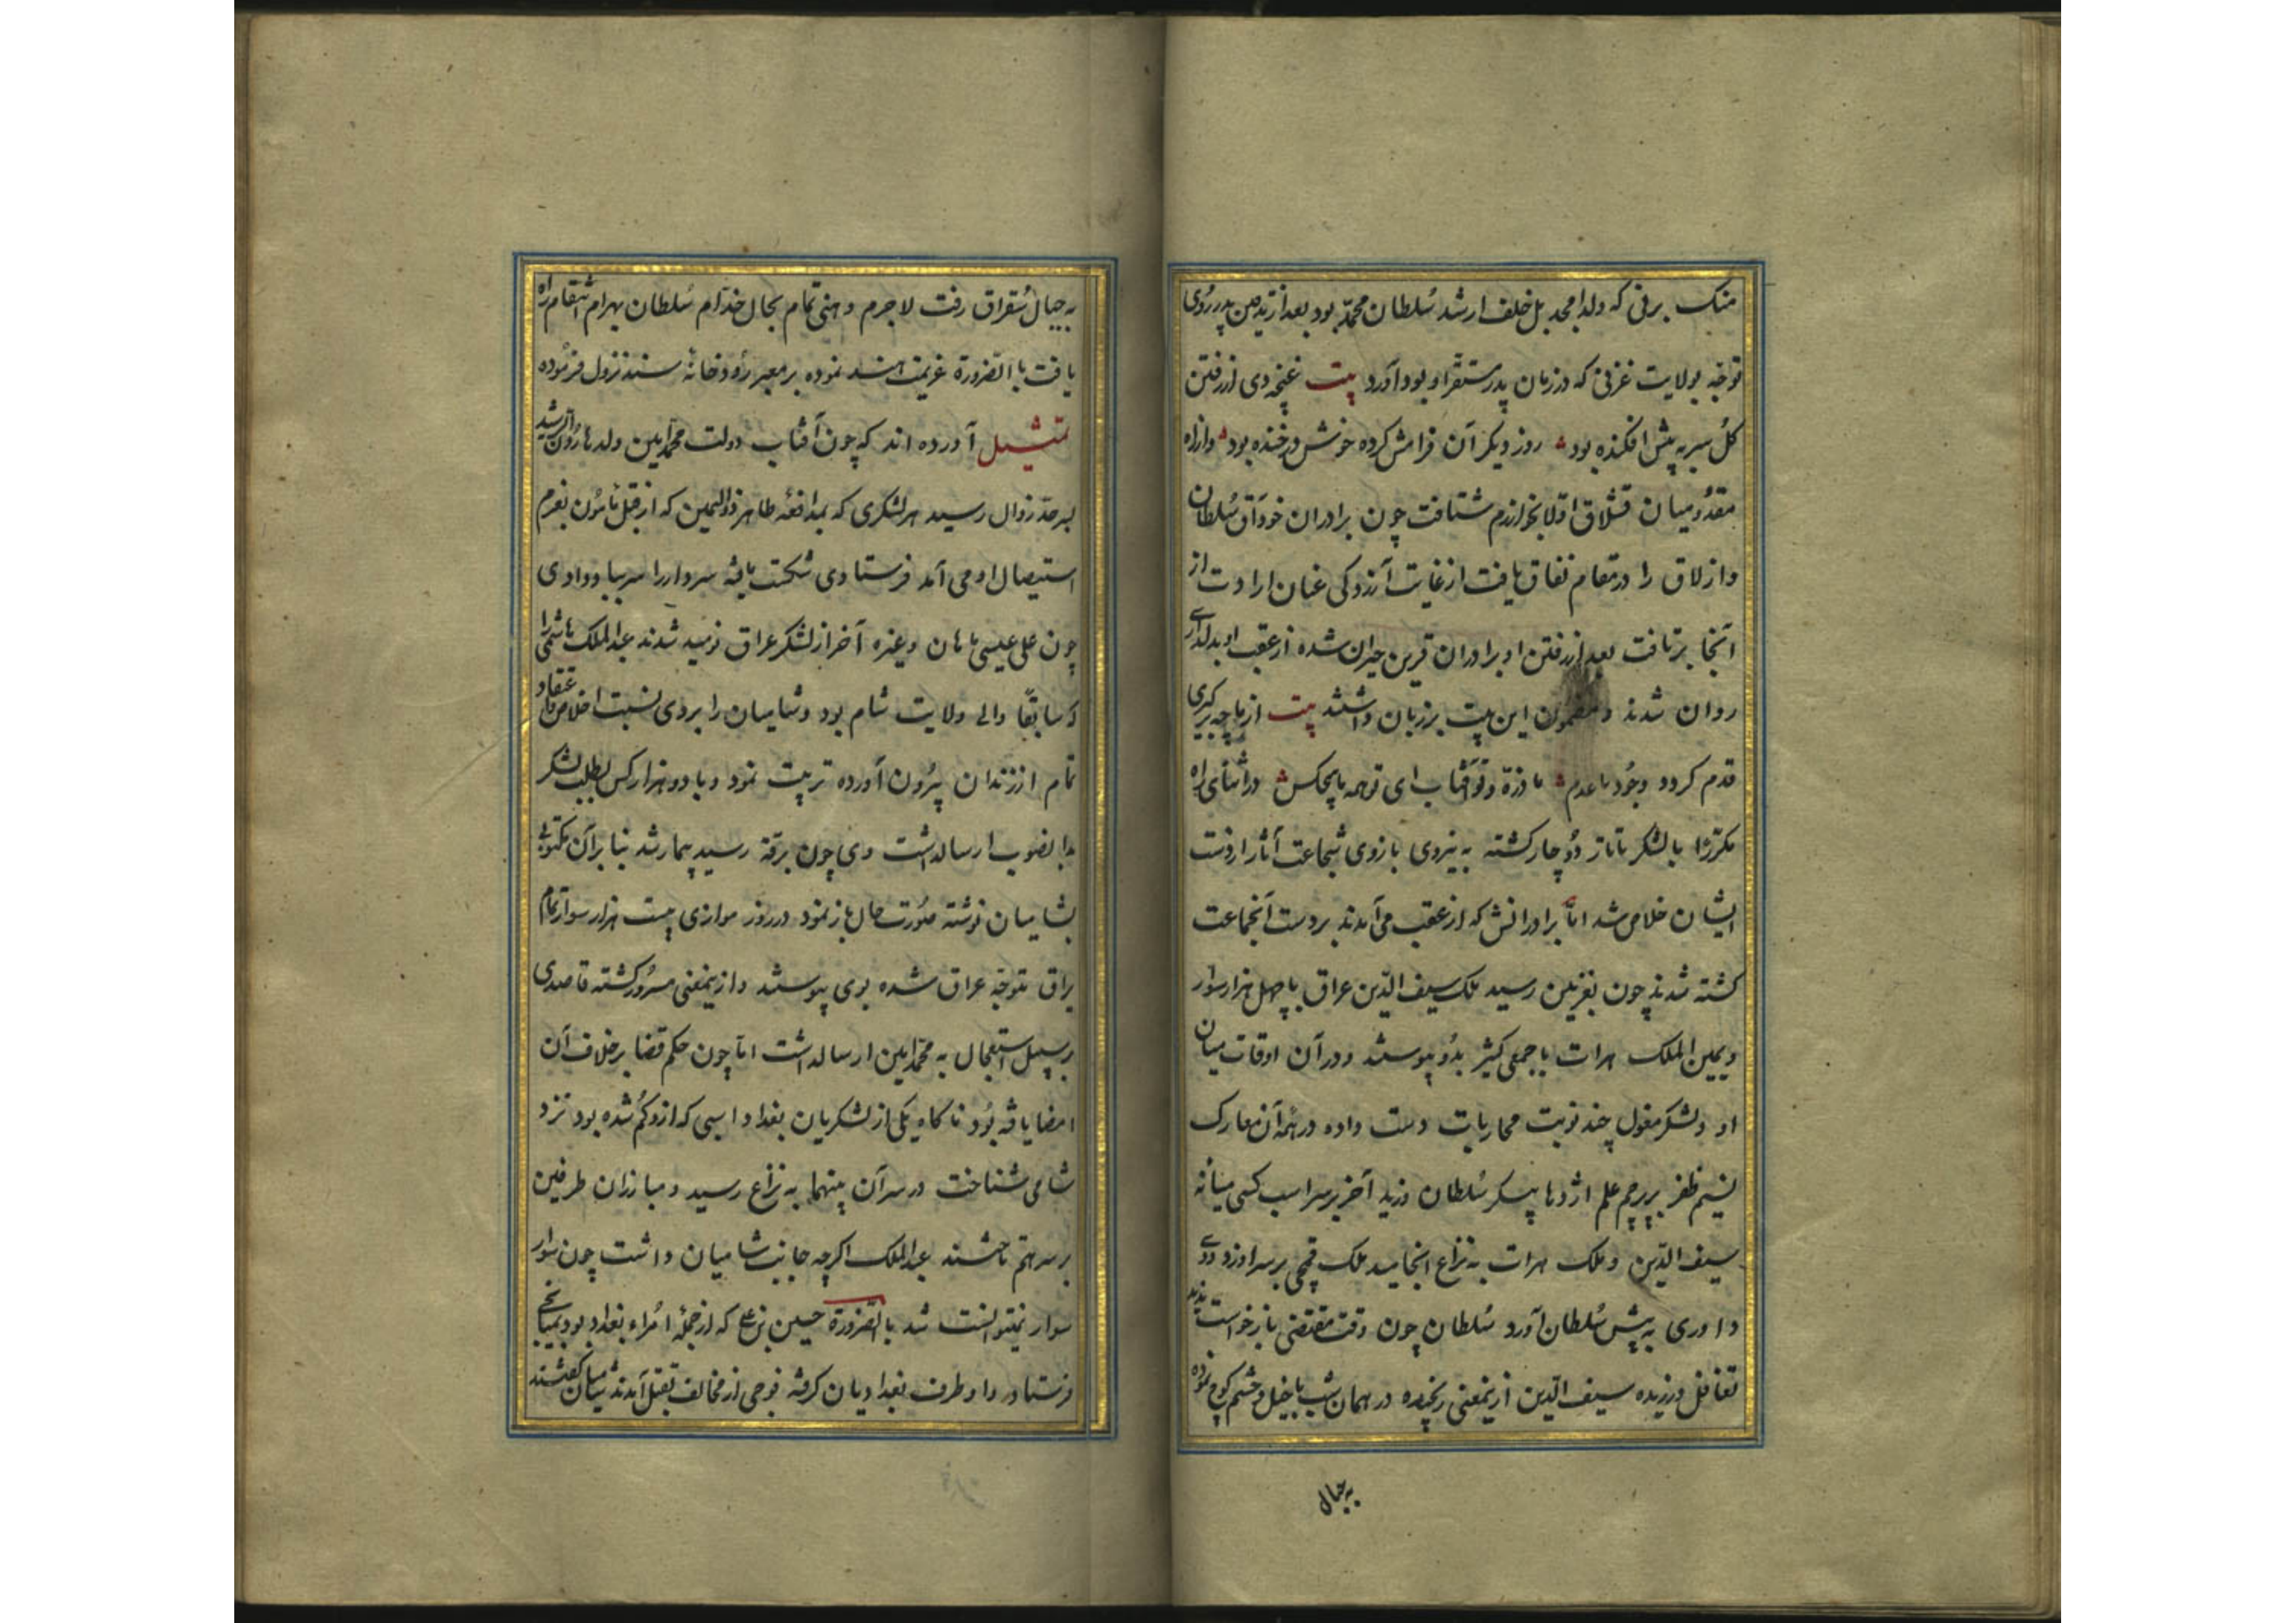 منک برنی که ولد امجد بل خلف ارشد سلطان محمد بود بعد از تدفین پدر روی
توجه بولایت غزنی که در زمان پدر مستقر او بود آورد بیت غنچه دی از رفتن
کل سر به پیش افکنده بود روز دیکر آن فرامش کرده خوش در خنده بود و از راه
میان قشلاق اولا بخوارزم شتافت چون برادران خود آق سلطان
و ازلاق را در مقام نفاق یافت از غایت آزردکی عنان ارادت از
آنجا برتافت بعد از رفتن او برادران قرین حیران شده از عقب او بدلداری
روان شدند و مضمون این بیت بر زبان داشتند بیت از ما چه برکیری
قدم کردد وجود ما عدم ما ذره و تو آفتاب ای تو همه ما هیچکس در اثنای راه
مکررا با لشکر تاتار دوچار کشته به نیروی بازوی شجاعت آثار از دست
ایشان خلاص شد اما برادرانش که از عقب می آمدند بر دست آنجماعت
کشته شدند چون بغزنین رسید ملک سیف الدین عراق با چهل هزار سوار
و یمین الملک هرات با جمعی کثیر بدو پیوستند و در آن اوقات میان
او و لشکر مغول چند نوبت محاربات دست داده در همه آن معارک
نسیم ظفر بر پرچم علم اژدها پیکر سلطان وزید آخر بر سر اسب کسی میانه
سیف الدین و ملک هرات به نزاع انجامید ملک قمچی بر سر او زد وی
داوری به پیش سلطان آورد سلطان چون وقت مقتضی بازخواست ندید
تغافل ورزیده سیف الدین ازینمعنی رنجیده در همان شب با خیل و حشم کوچ نموده
به جبال
به جبال سقراق رفت لاجرم وهنی تمام بحال خدام سلطان بهرام انتقام راه
یافت بالضرورة عزیمت هند نموده بر معبر رودخانه سند نزول فرموده
تمثیل آورده اند که چون آفتاب دولت محمد امین ولد هارون الرشید
بسرحد زوال رسید هر لشکری که بمدافعه طاهر ذوالیمین که از قبل مامون بعزم
استیصال او می آمد فرستادی شکست یافته سردار را سر بباد دادی
چون علی عیسی ماهان و غیره آخر از لشکر عراق نومید شدند عبدالملک هاشمی را
که سابقا والی ولایت شام بود و شامیان را بروی نسبت اخلاص و اعتقاد
تمام از زندان بیرون آورده تربیت نمود و با دو هزار کس بطلب لشکر
بدانصوب ارسالداشت وی چون برقه رسید بیمار شد بنا بر آن مکتوبی
بشامیان نوشته صورت حال باز نمود در روز موازی بیست هزار سوار تمام
یراق متوجه عراق شده بوی پیوستند و ازینمعنی مسرور کشته قاصدی
بر سبیل استعجال به محمد امین ارسالداشت اما چون حکم قضا بر خلاف آن
امضا یافته بود ناکاه یکی از لشکریان بغداد اسبی که ازو کم شده بود نزد
شامی شناخت در سر آن بینهما به نزاع رسید و مبارزان طرفین
بر سر هم تاختند عبدالملک اکرچه جانب شامیان داشت چون سوار
سوار نمیتوانست شد بالضرورة حسین بن علی که از جمله امراء بغداد بود
فرستاد و او طرف بغدادیان کرفته فوجی از مخالف بقتل آمدند شامیان کفتند